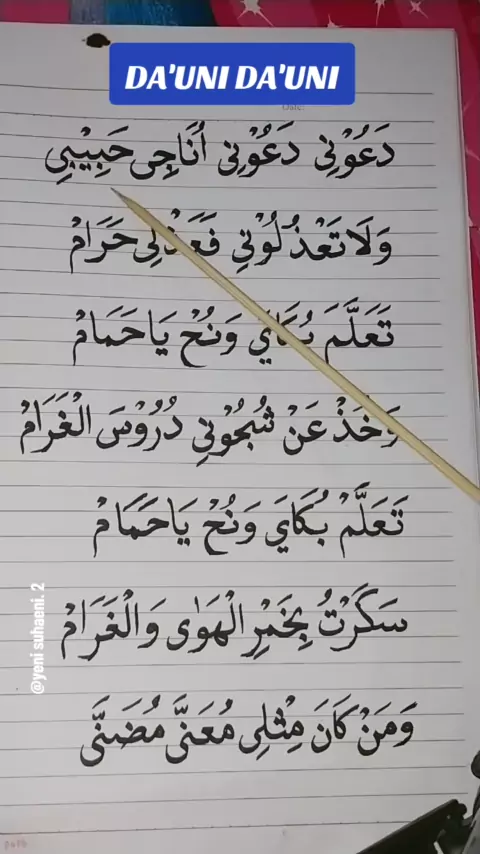 DA'UNI DA'UNI
Date:
دَعُوْنِي دَعُوْنِي أُنَاجِى حَبِيْبِي
وَلَا تَعْذُلُوْنِي فَعَذْلِى حَرَامْ
تَعَلَّمَ بُكَايَ وَنُحْ يَا حَمَامْ
وَخُذْ عَنْ شُجُوْنِي دُرُوْسَ الْغَرَامْ
تَعَلَّمْ بُكَايَ وَنُحْ يَا حَمَامْ
سَكَرْتُ بِخَمْرِ الْهَوٰى وَالْغَرَامْ
وَمَنْ كَانَ مِثْلِى مُعَنَّى مُضَنَّى
@yeni suhaeni. 2